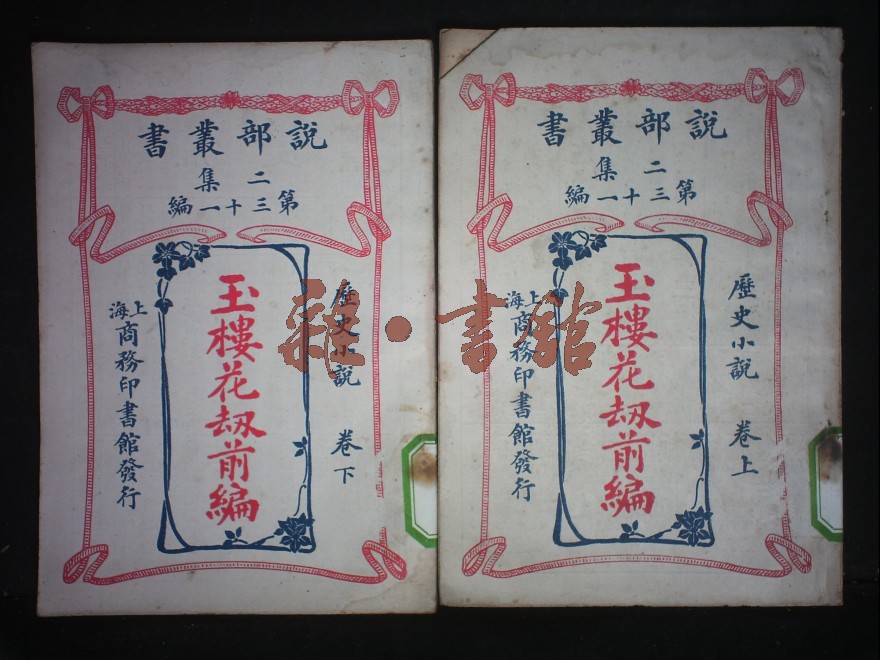 說部叢書
二集
第三十一編
歷史小說 卷下
玉樓花劫前編
上海商務印書館發行
說部叢書
二集
第三十一編
歷史小說 卷上
玉樓花劫前編
上海商務印書館發行
雜·書館